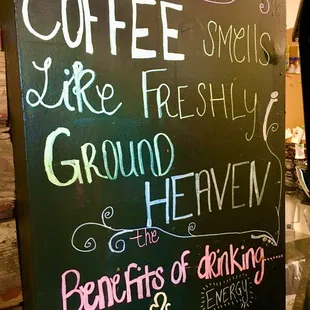 COFFEE SMEllS
Like FRESHLY
GROUND
HEAVEN
the
Benefits of drinking.....
ENERGY